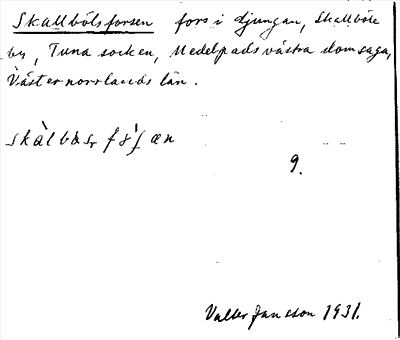 Skallbölsforsen fors i Ljungan, Skallböle
by, Tuna socken, Medelpads västra domsaga,
Västernorrlands län.
9.
Valter Jansson 1931.